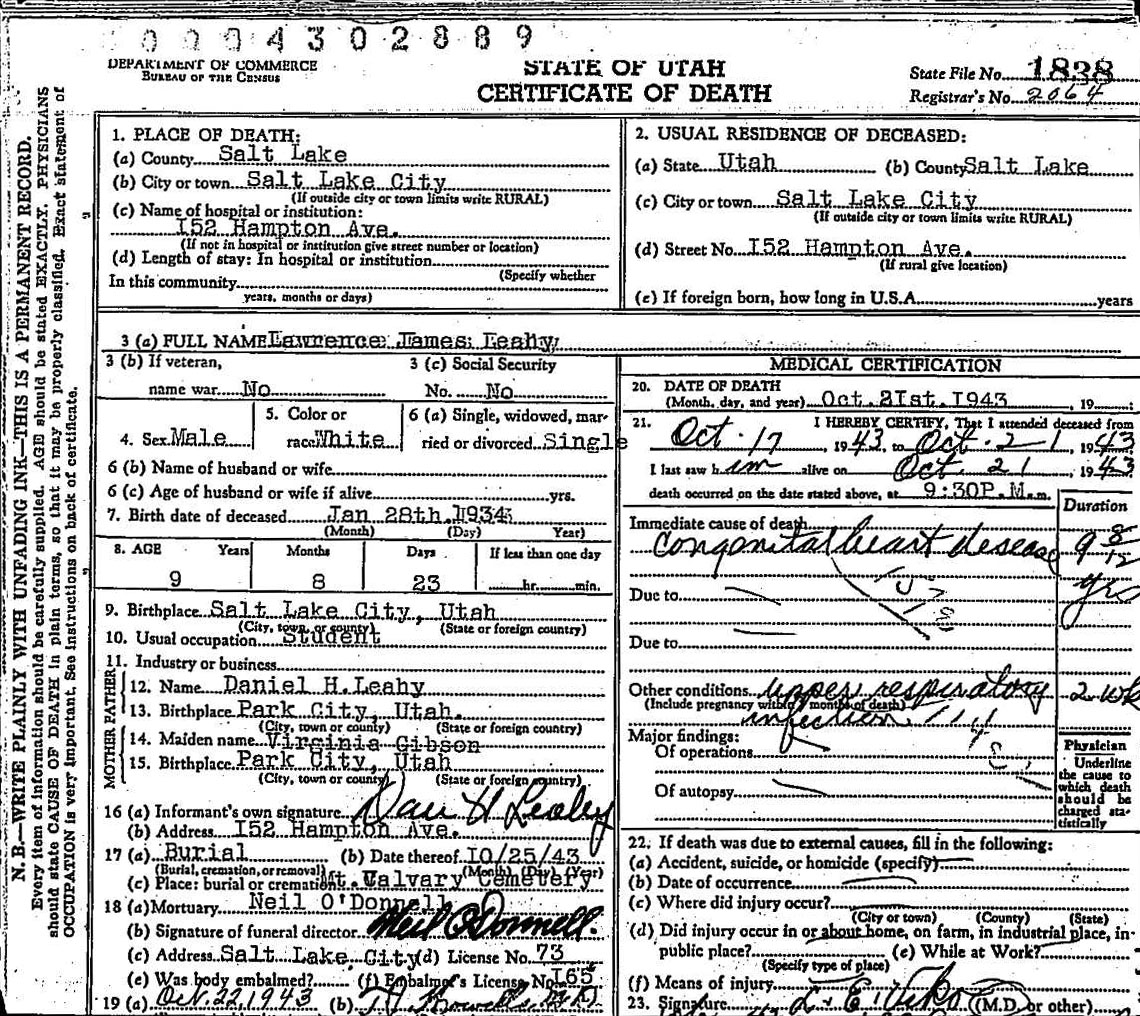 0 0 0 4 3 0 2 8 8 9
DEPARTMENT OF COMMERCE
BUREAU OF THE CENSUS
STATE OF UTAH
CERTIFICATE OF DEATH
State File No. 1838
Registrar's No. 2064
N. B.—WRITE PLAINLY WITH UNFADING INK—THIS IS A PERMANENT RECORD.
Every item of information should be carefully supplied. AGE should be stated EXACTLY. PHYSICIANS
should state CAUSE OF DEATH in plain terms, so that it may be properly classified. Exact statement of
OCCUPATION is very important. See instructions on back of certificate.
1. PLACE OF DEATH:
(a) County Salt Lake
(b) City or town Salt Lake City
(If outside city or town limits write RURAL)
(c) Name of hospital or institution:
I52 Hampton Ave.
(If not in hospital or institution give street number or location)
(d) Length of stay: In hospital or institution
(Specify whether
In this community
years, months or days)
2. USUAL RESIDENCE OF DECEASED:
(a) State Utah (b) County Salt Lake
(c) City or town Salt Lake City
(If outside city or town limits write RURAL)
(d) Street No. I52 Hampton Ave.
(If rural give location)
(e) If foreign born, how long in U.S.A. years
3 (a) FULL NAME Lawrence James Leahy
3 (b) If veteran, 3 (c) Social Security
name war No No. No
4. Sex Male
5. Color or
race White
6 (a) Single, widowed, mar-
ried or divorced Single
6 (b) Name of husband or wife
6 (c) Age of husband or wife if alive yrs.
7. Birth date of deceased Jan 28th. I934
(Month) (Day) Year)
8. AGE Years Months Days If less than one day
9 8 23 hr. min.
9. Birthplace Salt Lake City, Utah
(City, town, or county) (State or foreign country)
10. Usual occupation Student
11. Industry or business
FATHER
12. Name Daniel H.Leahy
13. Birthplace Park City, Utah.
(City, town or county) (State or foreign country)
MOTHER
14. Maiden name Virginia Gibson
15. Birthplace Park City, Utah
(City, town or county) (State or foreign country)
16 (a) Informant's own signature Dan H Leahy
(b) Address I52 Hampton Ave.
17 (a) Burial (b) Date thereof I0/25/43
(Burial, cremation, or removal) (Month) (Day) (Year)
(c) Place: burial or cremation Mt. Calvary Cemetery
18 (a) Mortuary Neil O'Donnell
(b) Signature of funeral director Neil O'Donnell.
(c) Address Salt Lake City (d) License No. 73
(e) Was body embalmed? (f) Embalmer's License No. I65
19 (a) Oct. 22, 1943 (b)
MEDICAL CERTIFICATION
20. DATE OF DEATH
(Month, day, and year) Oct.2Ist.I943 , 19
21. I HEREBY CERTIFY, That I attended deceased from
Oct. 17 1943, to Oct. 21 1943
I last saw him alive on Oct. 21 1943
death occurred on the date stated above, at 9:30P.M. m.
Duration
Immediate cause of death
Congenital heart desease 9 8/12
yrs
Due to
Due to
Other conditions upper respiratory 2 wk
(Include pregnancy within 3 months of death)
infection
Major findings:
Of operations
Of autopsy
Physician
Underline
the cause to
which death
should be
charged sta-
tistically
22. If death was due to external causes, fill in the following:
(a) Accident, suicide, or homicide (specify)
(b) Date of occurrence
(c) Where did injury occur?
(City or town) (County) (State)
(d) Did injury occur in or about home, on farm, in industrial place, in-
public place? (e) While at Work?
(Specify type of place)
(f) Means of injury
23. Signature L. E. Viko (M.D. or other)